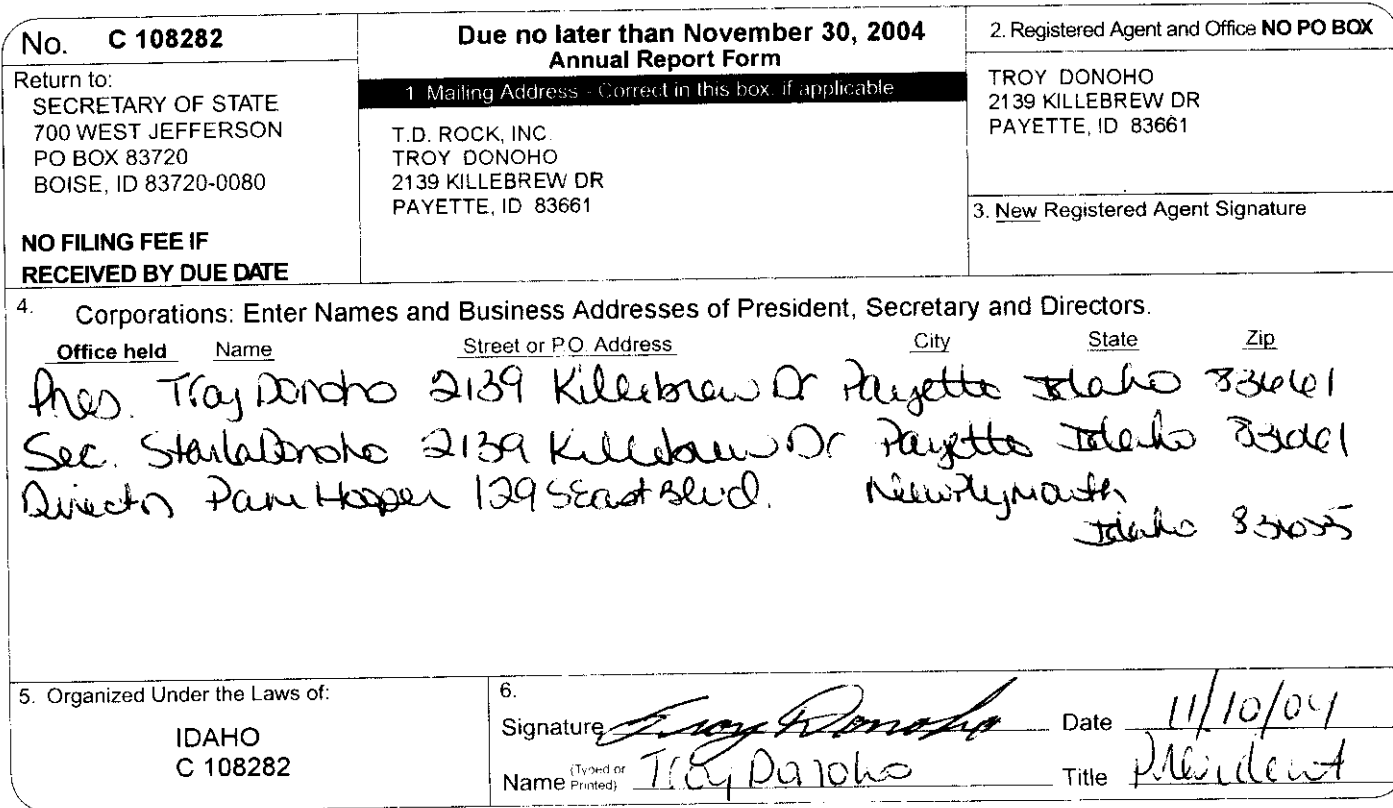 No. C 108282
Return to:
SECRETARY OF STATE
700 WEST JEFFERSON
PO BOX 83720
BOISE, ID 83720-0080
NO FILING FEE IF
RECEIVED BY DUE DATE
Due no later than November 30, 2004
Annual Report Form
1 Mailing Address - Correct in this box, if applicable
T.D. ROCK, INC.
TROY DONOHO
2139 KILLEBREW DR
PAYETTE, ID 83661
2. Registered Agent and Office NO PO BOX
TROY DONOHO
2139 KILLEBREW DR
PAYETTE, ID 83661
3. New Registered Agent Signature
4. Corporations: Enter Names and Business Addresses of President, Secretary and Directors.
Office held Name Street or P.O. Address City State Zip
Pres. Troy Donoho 2139 Killebrew Dr Payette Idaho 83661
Sec. Starla Donoho 2139 Killebrew Dr Payette Idaho 83661
Director Pam Hopper 129 S East Blvd. New Plymouth
Idaho 83655
5. Organized Under the Laws of:
IDAHO
C 108282
6.
Signature Troy Donoho Date 11/10/04
Name (Typed or Printed) Troy Donoho Title President